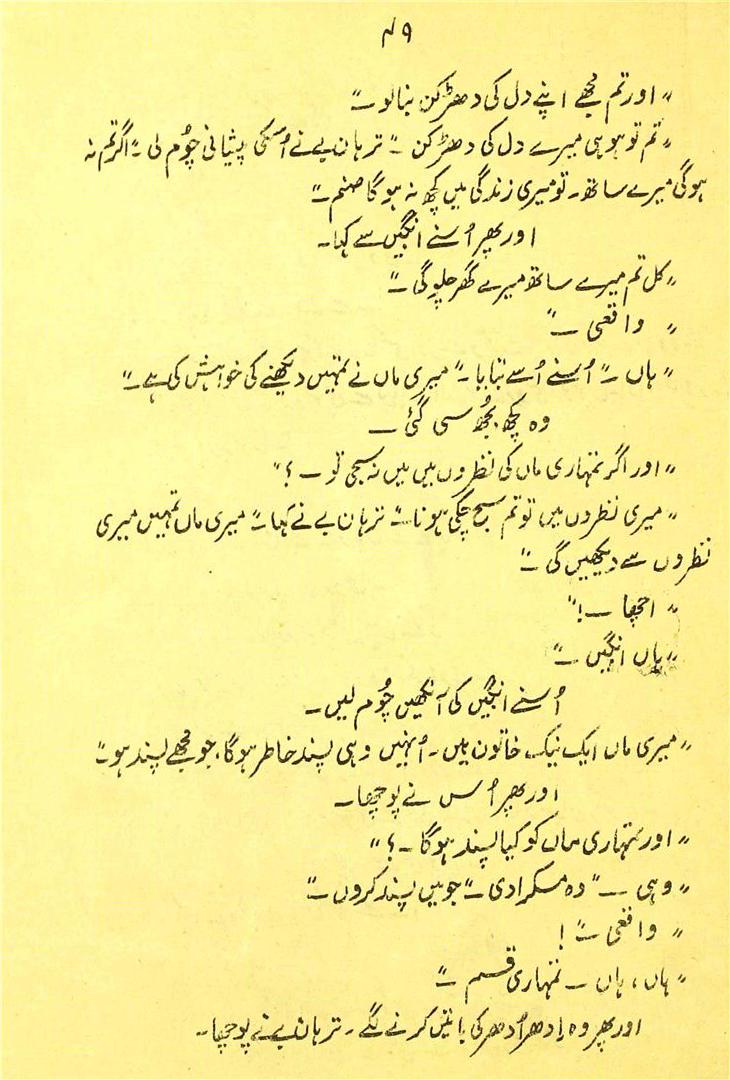 ۴۹
"اور تم مجھے اپنے دل کی دھڑکن بنا لو۔"
"تم تو ہو ہی میرے دل کی دھڑکن۔" ترہان بے نے اُسکی پیشانی چوُم لی۔ "اگر تم نہ
ہوگی میرے ساتھ۔ تو میری زندگی میں کچھ نہ ہوگا صنم۔"
اور پھر اُسنے انگیں سے کہا۔
"کل تم میرے ساتھ میرے گھر چلوگی۔"
"واقعی ـــ"
"ہاں۔" اُسنے اُسے بتایا۔ "میری ماں نے تمہیں دیکھنے کی خواہش کی ہے۔"
وہ کچھ بجُھ سی گئی ـــ
"اور اگر تمہاری ماں کی نظروں میں میں نہ سجی تو ـــ ؟"
"میری نظروں میں تو تم سبح چکی ہو نا۔" ترہان بے نے کہا۔ "میری ماں تمہیں میری
نظروں سے دیکھیں گی۔"
"اچھا ـــ!"
"ہاں انگیں ـــ"
اُسنے انگیں کی آنکھیں چوُم لیں۔
"میری ماں ایک نیک خاتون ہیں۔ اُنہیں وہی پسند خاطر ہوگا، جو مجھے پسند ہو۔"
اور پھر اُس نے پوچھا۔
"اور تمہاری ماں کو کیا پسند ہوگا۔ ؟"
"وہی ـــ" وہ مسکرا دی۔ "جو میں پسند کروں۔"
"واقعی ـــ" !
"ہاں، ہاں ـــ تمہاری قسم ـــ"
اور پھر وہ اِدھر اُدھر کی باتیں کرنے لگے۔ ترہان بے نے پوچھا۔